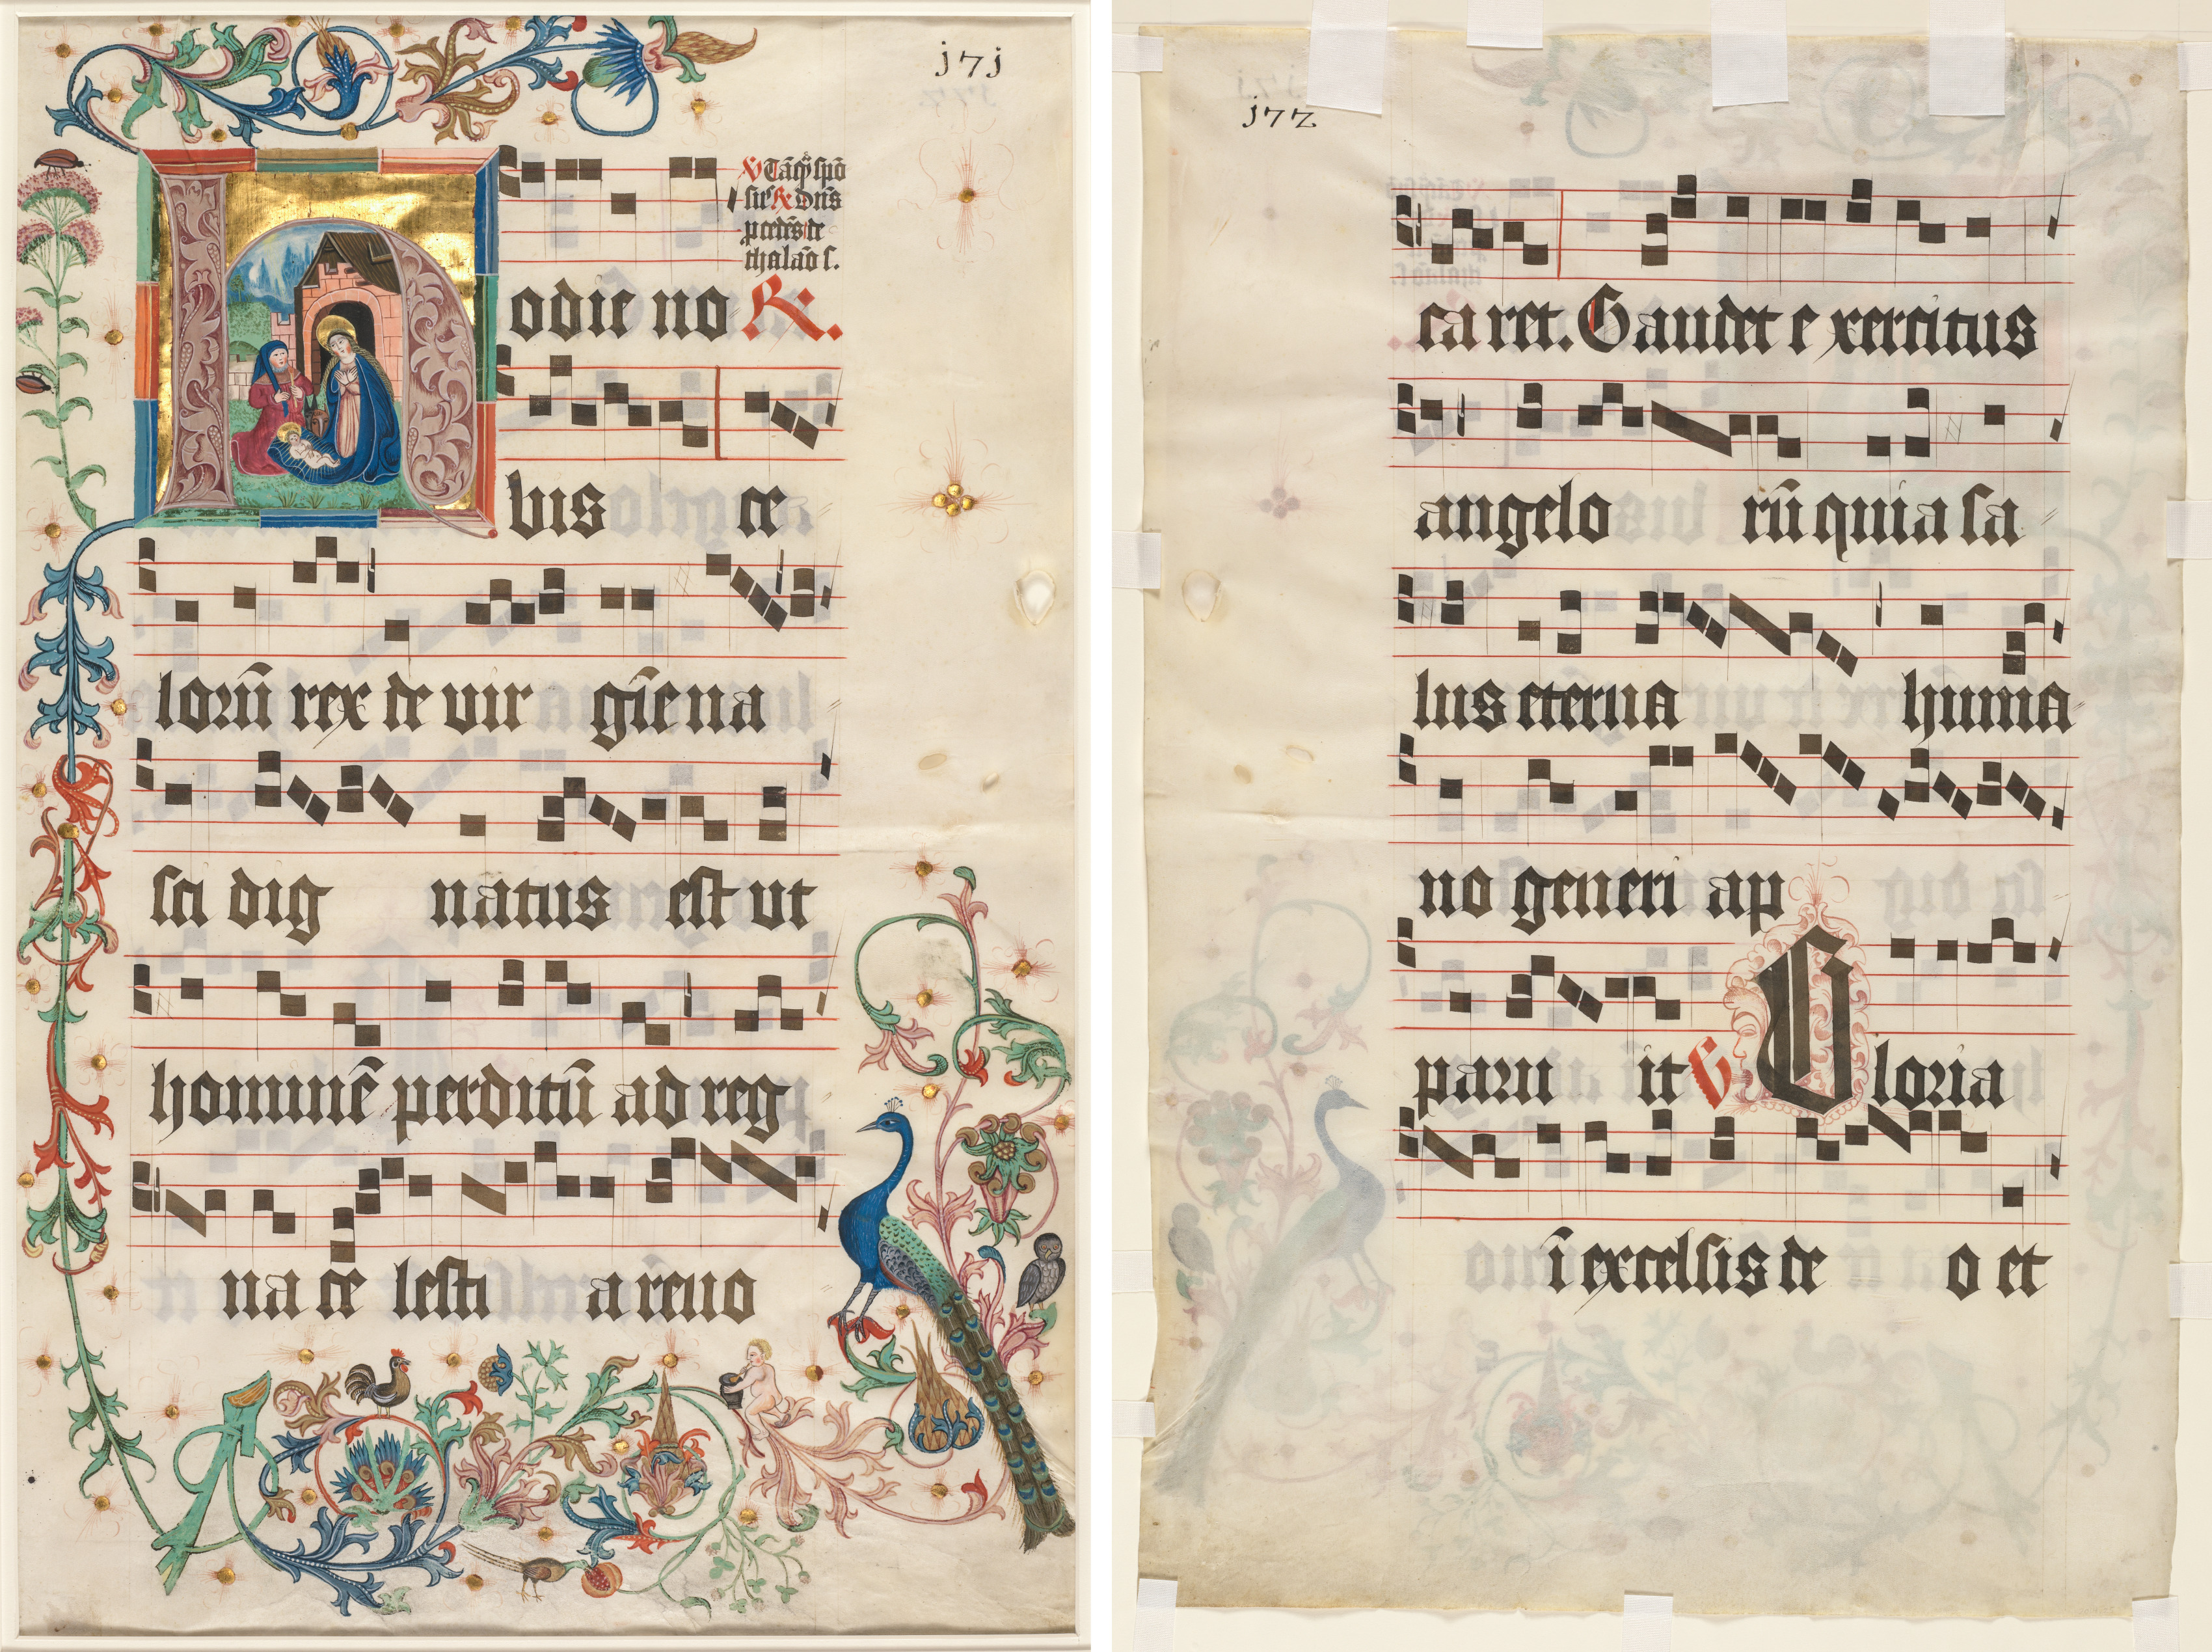 j7j
℣ Tāq̄ spō
sus ℟ Dn̄s
pcedēs de
thalāo s.
Hodie no ℟.
bis ce
lorū rex de vir gīe na
sci dig natus est ut
hominē perditū ad reg
na ce lesti a reuo
j72
ca ret. Gaudet e xercitus
angelo rū quia sa
lus eterna huma
no generi ap
paru it ℣ Gloria
ī excelsis de o et